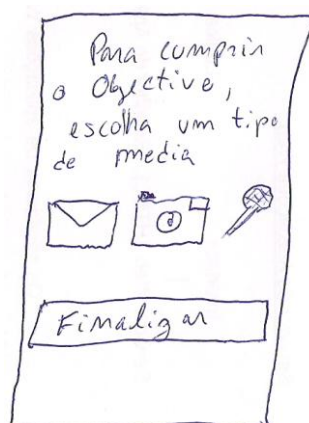 Para cumprir
o Objective,
escolha um tipo
de media
Finalizar